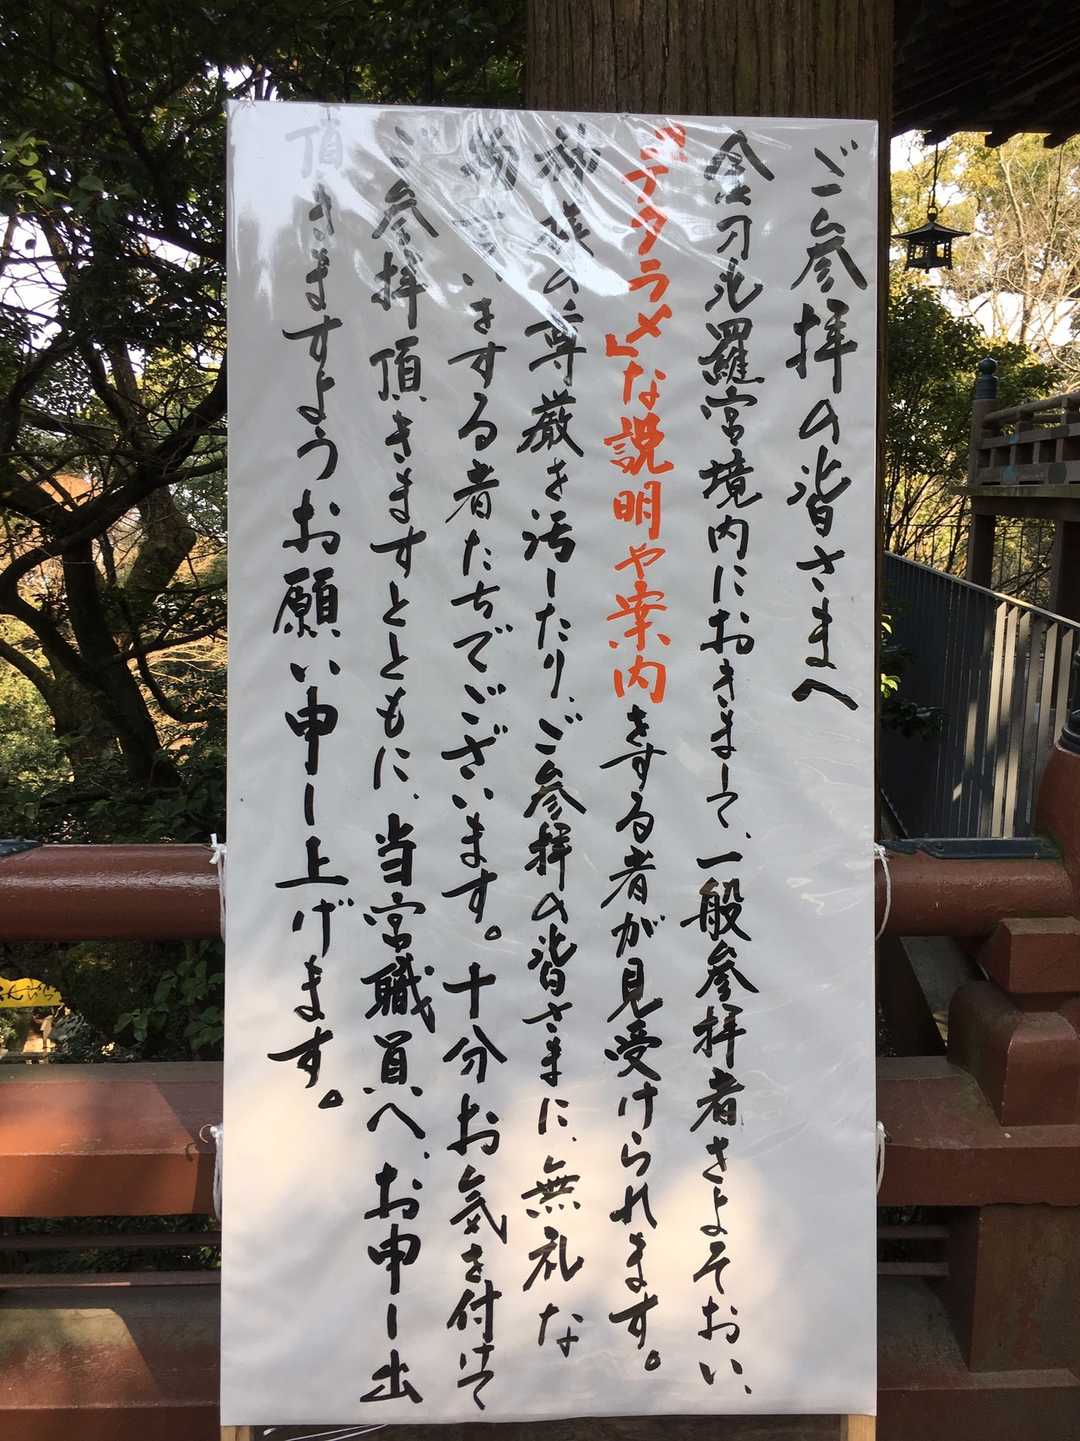 ご参拝の皆さまへ
金刀比羅宮境内におきまして、一般参拝者をよそおい、
『デタラメ』な説明や案内をする者が見受けられます。
神様の尊厳を汚したり、ご参拝の皆さまに、無礼な
物言いをする者たちでございます。十分お気を付けて
ご参拝頂きますとともに、当宮職員へ、お申し出
頂きますようお願い申し上げます。
んぴら